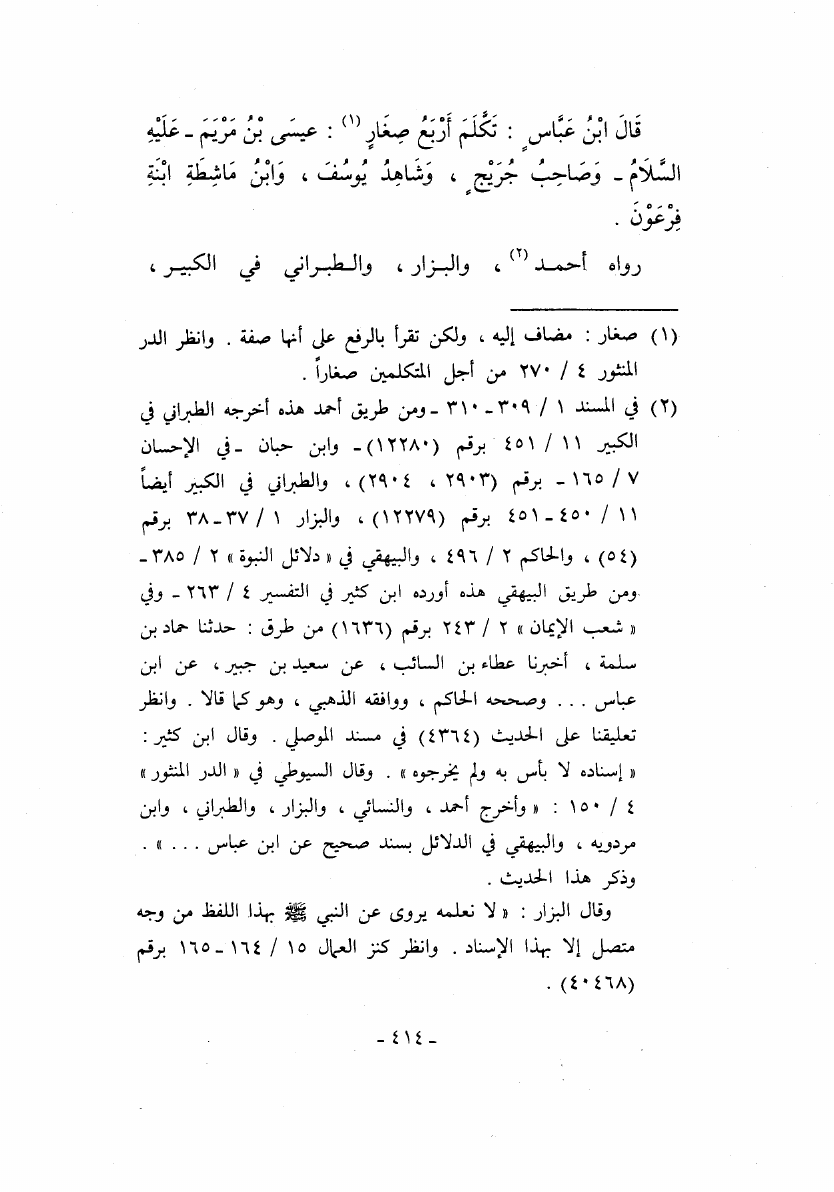 قَالَ ابْنُ عَبَّاسٍ : تَكَلَّمَ أَرْبَعُ صِغَارٍ (١) : عِيسَى بْنُ مَرْيَمَ ـ عَلَيْهِ
السَّلَامُ ـ وَصَاحِبُ جُرَيْجٍ ، وَشَاهِدُ يُوسُفَ ، وَابْنُ مَاشِطَةِ ابْنَةِ
فِرْعَوْنَ .
رواه أحمد (٢) ، والبزار ، والطبراني في الكبير ،
(١) صغار : مضاف إليه ، ولكن تقرأ بالرفع على أنها صفة . وانظر الدر
المنثور ٤ / ٢٧٠ من أجل المتكلمين صغاراً .
(٢) في المسند ١ / ٣٠٩ ـ ٣١٠ ـ ومن طريق أحمد هذه أخرجه الطبراني في
الكبير ١١ / ٤٥١ برقم (١٢٢٨٠) ـ وابن حبان ـ في الإحسان
٧ / ١٦٥ ـ برقم (٢٩٠٣ ، ٢٩٠٤) ، والطبراني في الكبير أيضاً
١١ / ٤٥٠ ـ ٤٥١ برقم (١٢٢٧٩) ، والبزار ١ / ٣٧ ـ ٣٨ برقم
(٥٤) ، والحاكم ٢ / ٤٩٦ ، والبيهقي في « دلائل النبوة » ٢ / ٣٨٥ ـ
ومن طريق البيهقي هذه أورده ابن كثير في التفسير ٤ / ٢٦٣ ـ وفي
« شعب الإيمان » ٢ / ٢٤٣ برقم (١٦٣٦) من طرق : حدثنا حماد بن
سلمة ، أخبرنا عطاء بن السائب ، عن سعيد بن جبير ، عن ابن
عباس ... وصححه الحاكم ، ووافقه الذهبي ، وهو كما قالا . وانظر
تعليقنا على الحديث (٤٣٦٤) في مسند الموصلي . وقال ابن كثير :
« إسناده لا بأس به ولم يخرجوه » . وقال السيوطي في « الدر المنثور »
٤ / ١٥٠ : « وأخرج أحمد ، والنسائي ، والبزار ، والطبراني ، وابن
مردويه ، والبيهقي في الدلائل بسند صحيح عن ابن عباس ... » .
وذكر هذا الحديث .
وقال البزار : « لا نعلمه يروى عن النبي ﷺ بهذا اللفظ من وجه
متصل إلا بهذا الإسناد . وانظر كنز العمال ١٥ / ١٦٤ ـ ١٦٥ برقم
(٤٠٤٦٨) .
ـ ٤١٤ ـ